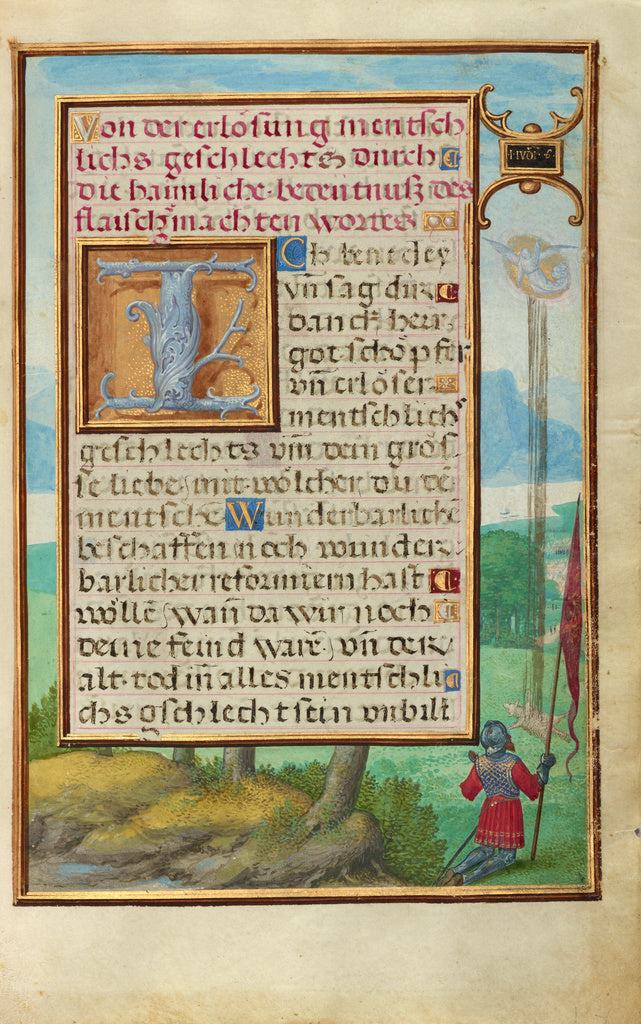 Von der erlösung mentsch
lichs geschlechts durch
die haimliche bedeutnusz des
flaischgmachten wortes
ICh bent dey
vn̄ sag dir
danck herr
got schöpfer
vn̄ erlöser
mentschlichs
geschlechts vm̄ dein grös
se liebe mit wölcher du dē
mentschē Wunderbarlichē
beschaffen noch wunder
barlicher reformiern hast
wöllē wan̄ da wir noch
deine feind warē vn̄ der
alt tod in̄ alles mentschli
chs gschlecht sein vnbilt
IVDI 6